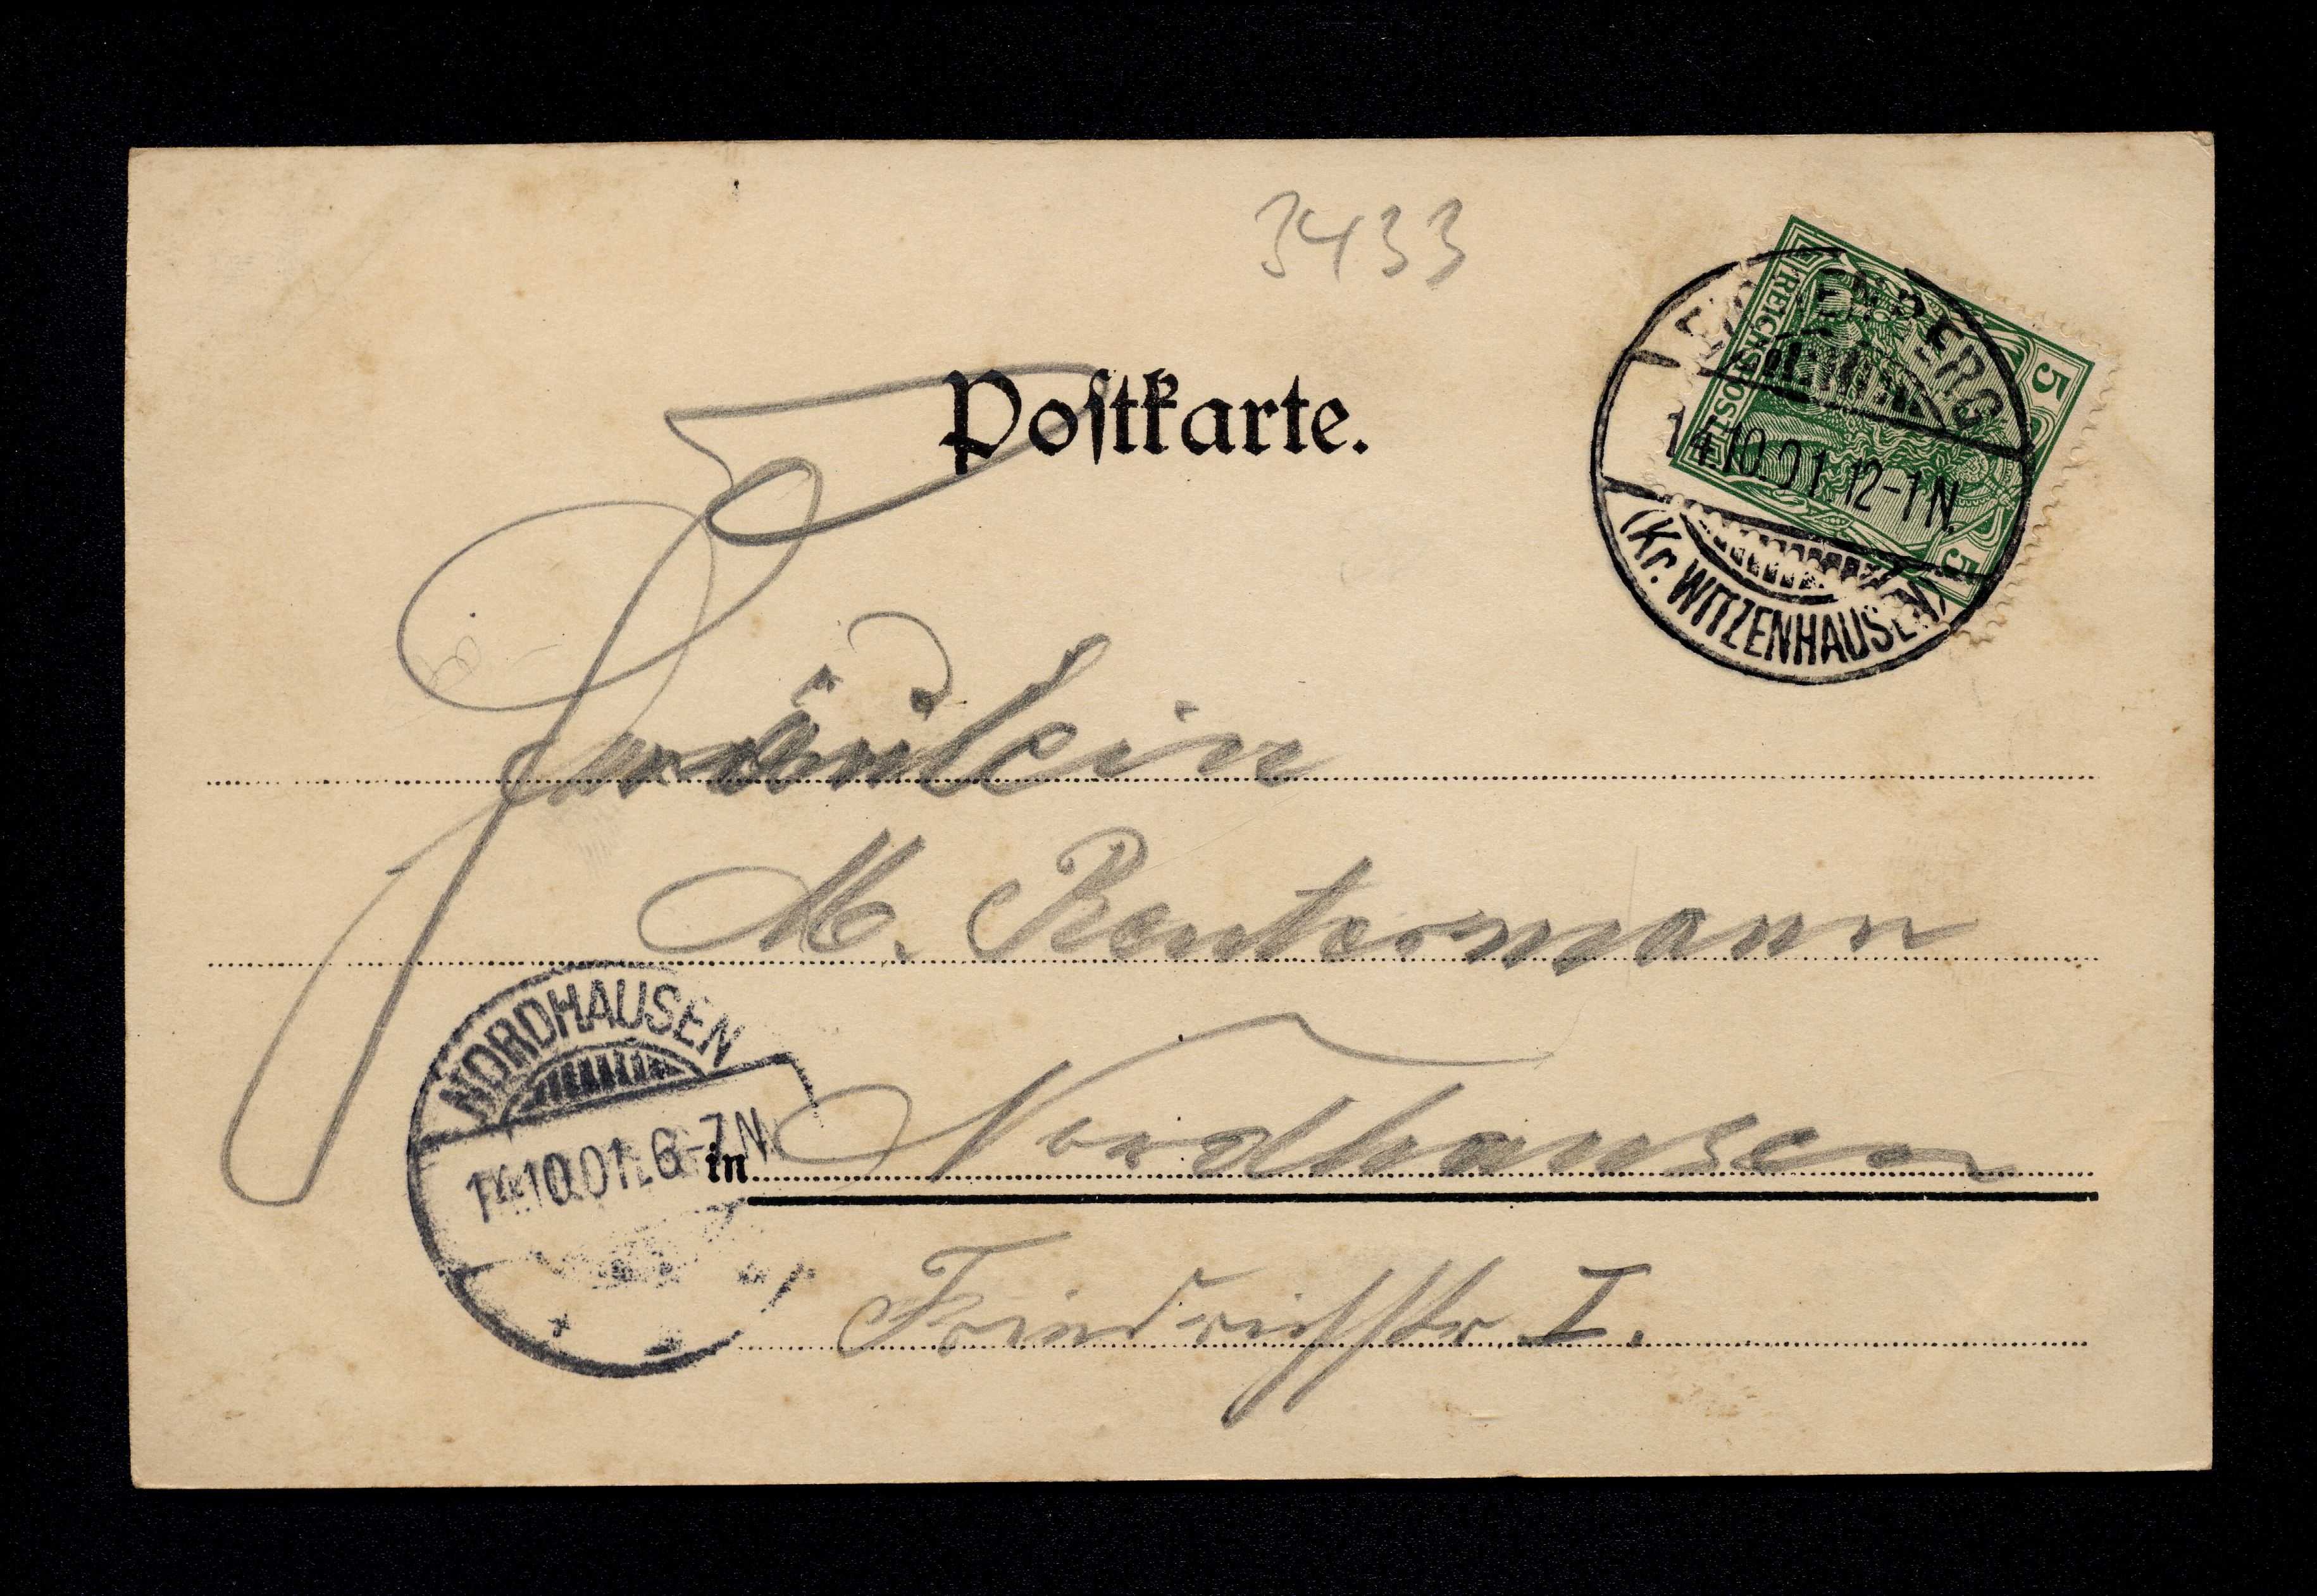 3433
Postkarte.
REICHSPOST
5
5
14.10.01.12-1N.
(Kr. WITZENHAUSEN)
Fräulein
M. Reutermann
NORDHAUSEN
14.10.01. 6-7N.
in Nordhausen
Friedrichstr I.